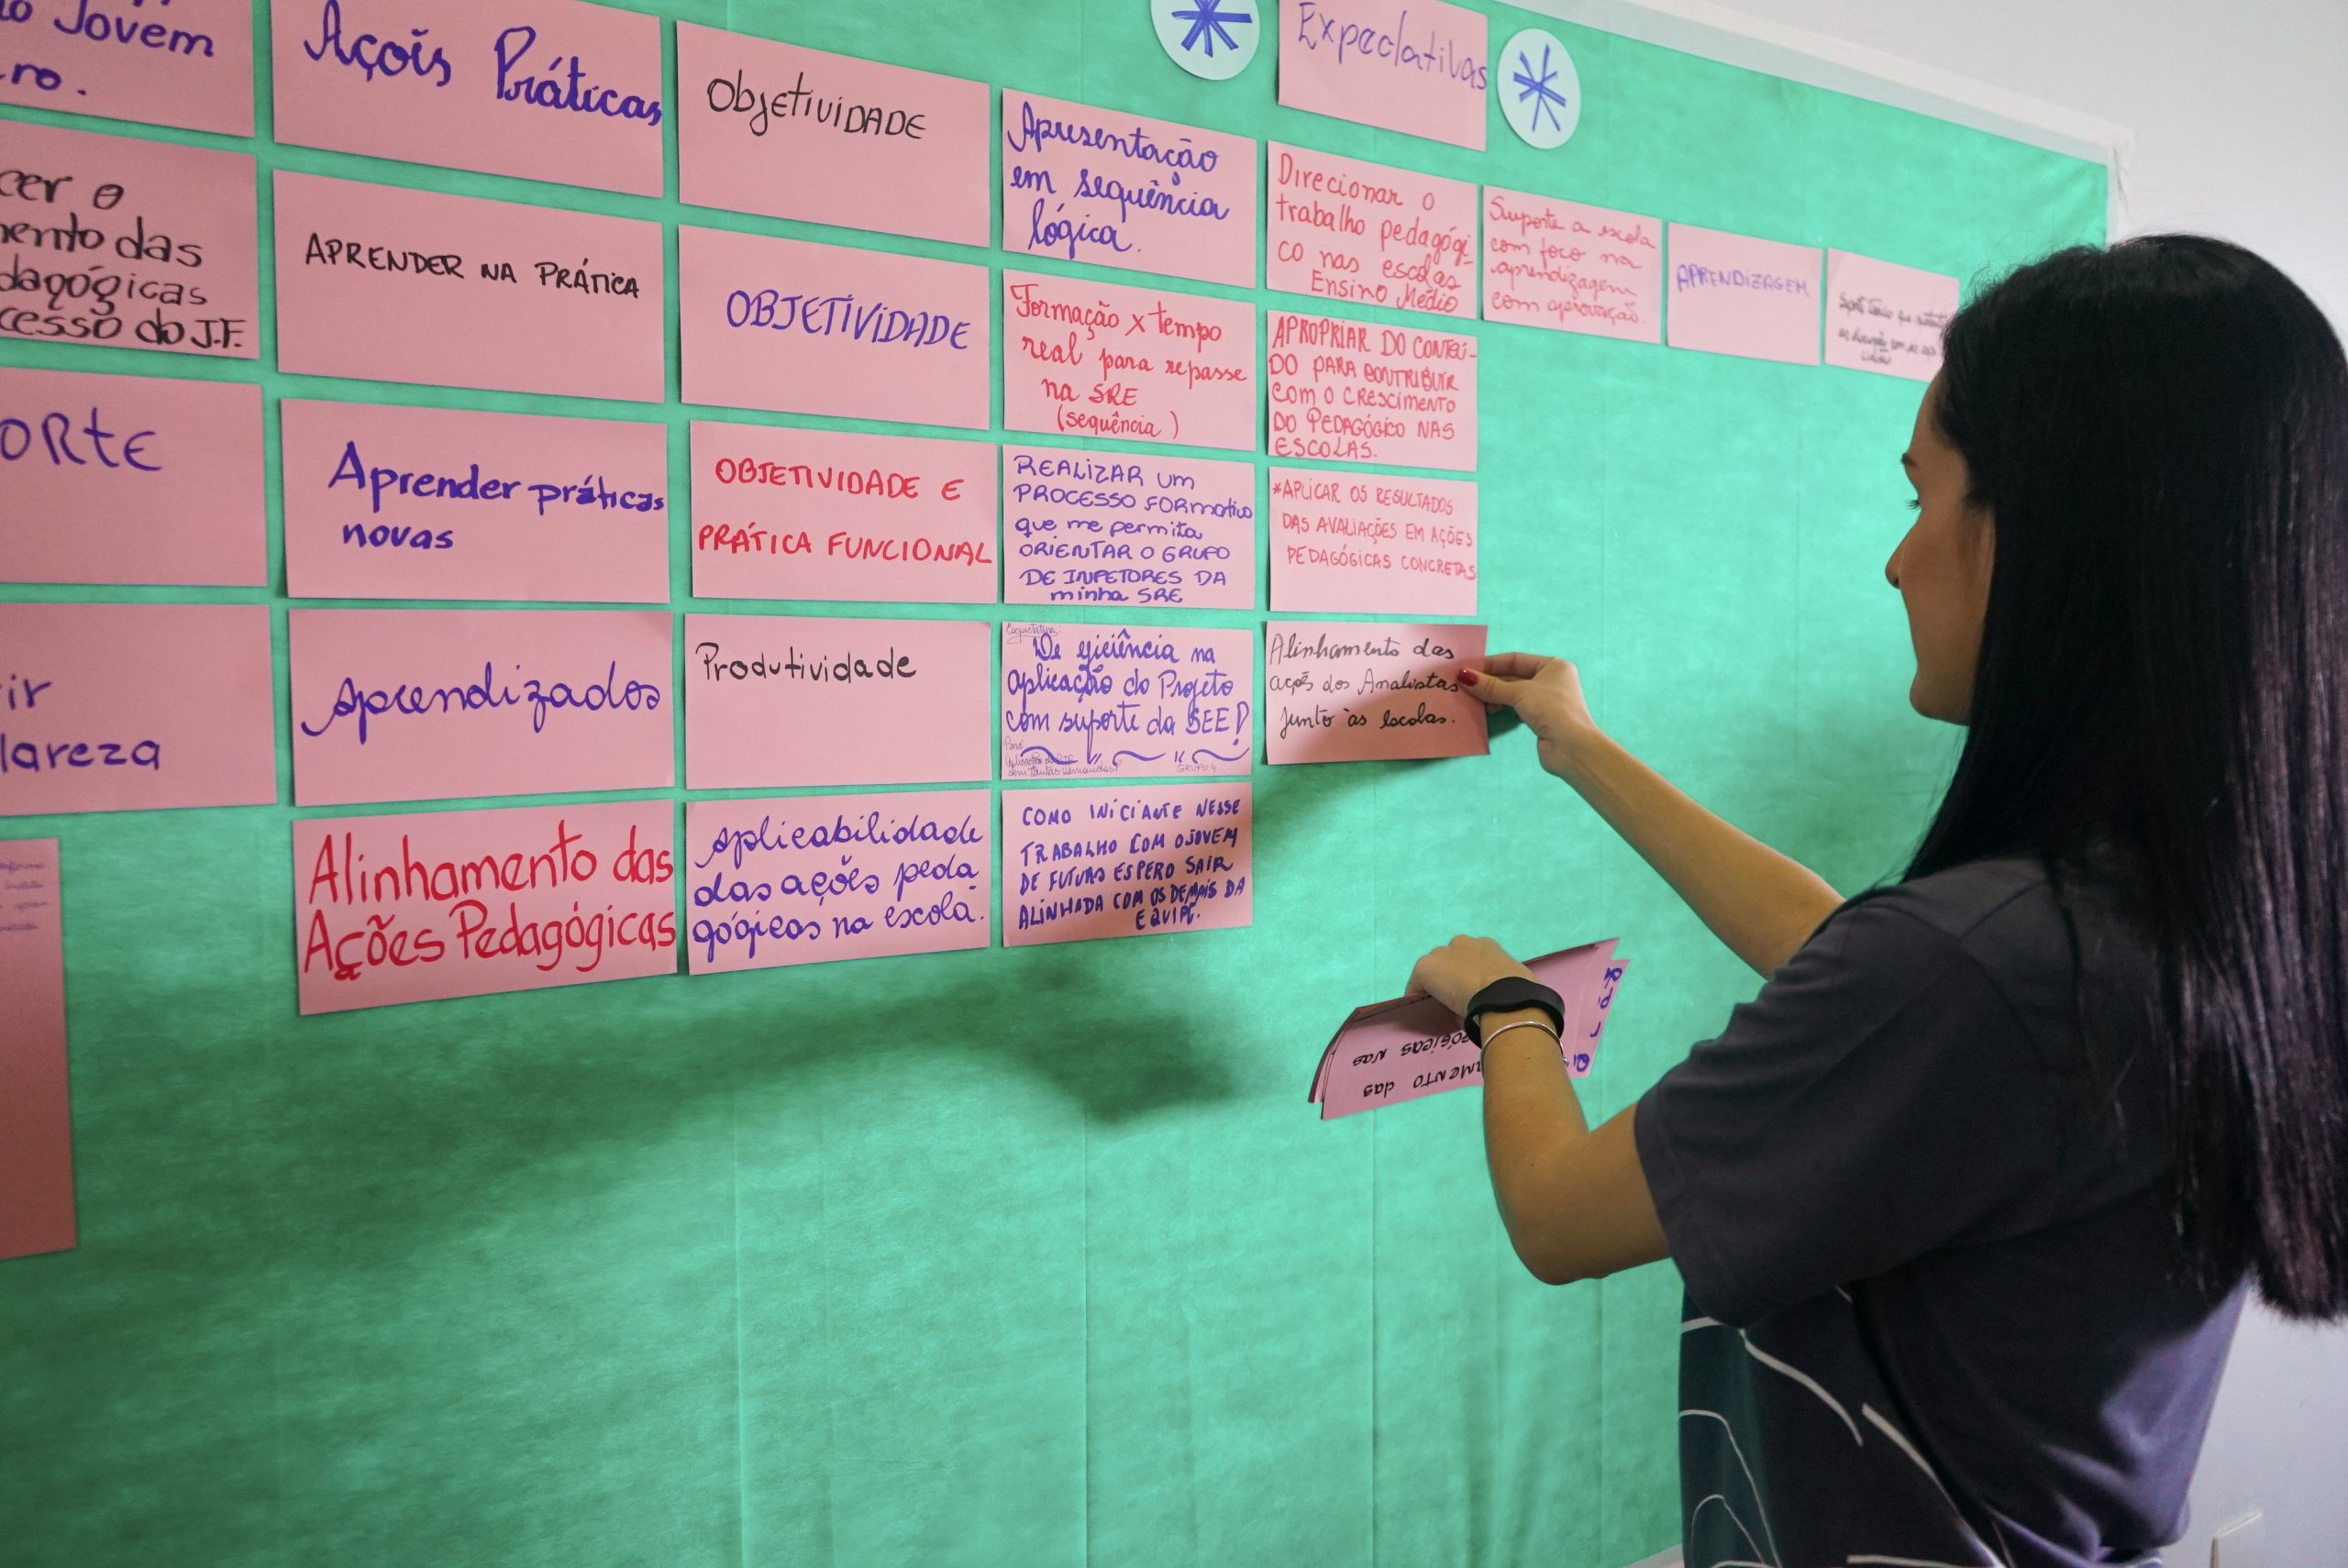 Jovem
ro.
cer o
mento das
dagógicas
cesso do J.F.
ORTE
ir
lareza
Açois Práticas
APRENDER NA PRÁTICA
Aprender práticas
novas
Aprendizados
Alinhamento das
Ações Pedagógicas
ObjETIVIDADE
OBJETIVIDADE
OBJETIVIDADE E
PRÁTICA FUNCIONAL
Produtividade
Aplicabilidade
das ações peda
gógicas na escola.
Apresentação
em sequência
lógica.
Formação x tempo
real para repasse
na SRE
(sequência)
REALIZAR UM
PROCESSO FORMATIVO
que me permita
ORIENTAR O GRUPO
DE INPETORES DA
minha SRE
Expectativa:
De eficiência na
aplicação do Projeto
com suporte da SEE!
GRUPO 4
COMO INICIANTE NESSE
TRABALHO COM O JOVEM
DE FUTURO ESPERO SAIR
ALINHADA COM OS DEMAIS DA
EQUIPE.
Expectativas
Direcionar o
trabalho pedagógi-
co nas escolas
Ensino Médio
APROPRIAR DO CONTEÚ-
DO PARA CONTRIBUIR
COM O CRESCIMENTO
DO PEDAGÓGICO NAS
ESCOLAS.
*APLICAR OS RESULTADOS
DAS AVALIAÇÕES EM AÇÕES
PEDAGÓGICAS CONCRETAS
Alinhamento das
açoēs dos Analistas
junto às escolas.
Suporte a escola
com foco na
aprendizagem
com aprovação.
APRENDIZAGEM
amento das
ógicas nas